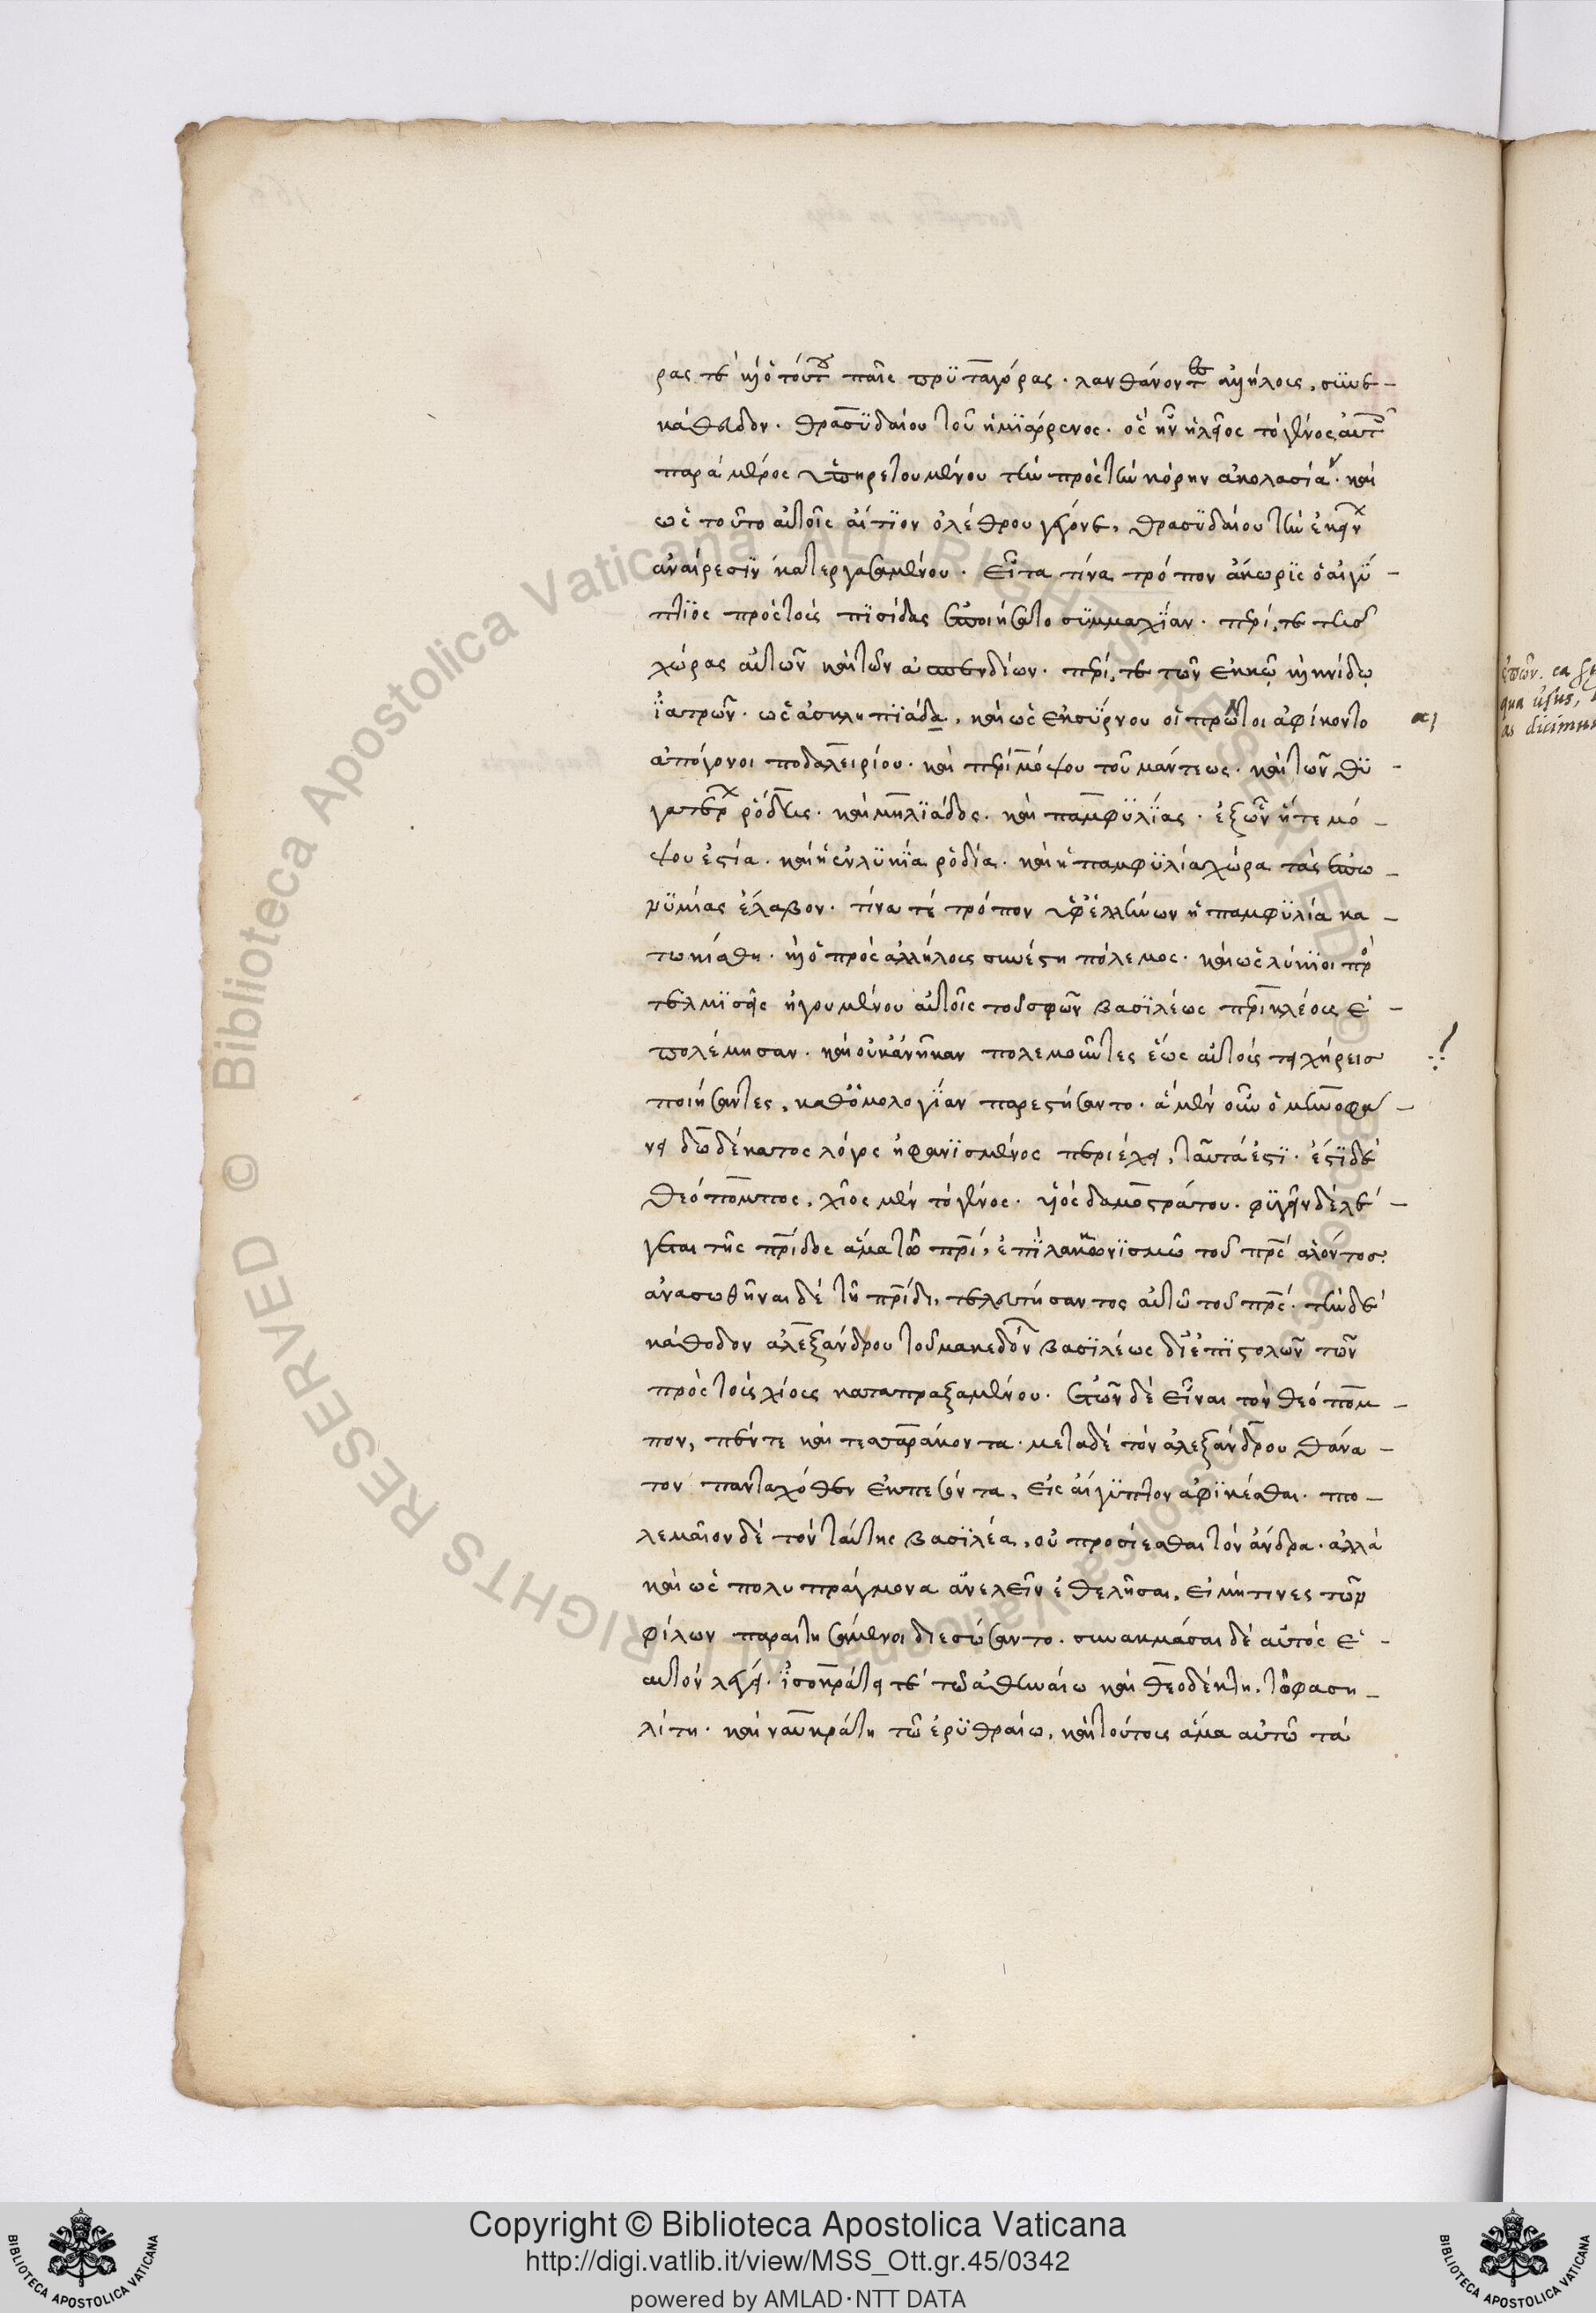 ρας τε καὶ ὁ τούτου παῖς πρϋταγόρας. λανθάνοντες ἀλλήλοις, σϋνε-
κάθευδον. θρασϋδαίου τοῦ ἡμϊάρρενος. ὃς ἦν ἠλεῖος τὸ γένος αὐτοῖς
παρὰ μέρος ὑπηρετουμένου τὴν πρὸς τὴν κόρην ἀκολασίαν. καὶ
ὡς τοῦτο αὐτοῖς αἴτϊον ὀλέθρου γέγονε, θρασϋδαίου τὴν ἐκείνων
ἀναίρεσϊν κατεργασαμένου. εἶτα τίνα τρόπον ἀκωρϊς ὁ αἰγϋ-
πτϊος πρὸς τοὺς πϊσίδας ἐποιήσατο σϋμμαχϊαν. περί, τε τῆς
χώρας αὐτῶν καὶ τῶν ἀσπενδίων. περί, τε τῶν ἐν κῷ καὶ κνίδῳ
ϊατρῶν. ὡς ἀσκληπϊάδα, καὶ ὡς ἐκ σϋρνου οἱ πρῶτοι ἀφίκοντο αι
ἀπόγονοι ποδαλειρίου. καὶ περὶ μόψου τοῦ μάντεως. καὶ τῶν θϋ-
γατέρων ρόδης. καὶ μηλϊάδος. καὶ παμφϋλϊας. ἐξ ὧν ἥ τε μό-
ψου ἑστία. καὶ ἡ ἐν λϋκϊα ροδία. καὶ ἡ παμφϋλία χώρα τὰς ἐπω-
νϋμίας ἔλαβον. τίνα τέ τρόπον ὑφ' ἑλλήνων ἡ παμφϋλία κα-
τωκίσθη. καὶ ὁ πρὸς ἀλλήλους συνέστη πόλεμος. καὶ ὡς λύκϊοι πρὸς
τελμϊσεῖς ἡγουμένου αὐτοῖς τοῦ σφῶν βασϊλέως περικλέους ἐ-
πολέμησαν. καὶ οὐκ ἀνῆκαν πολεμοῦντες ἕως αὐτοὺς τειχήρεις
ποιήσαντες, καθ' ὁμολογϊαν παρεστήσαντο. ἃ μὲν οὖν ὁ μηνοφα-
νει δωδέκατος λόγος ἠφανϊσμένος περιέχει, ταῦτά ἐστϊ. ἔστϊ δὲ
θεόπομπος, χῖος μὲν τὸ γένος. υἱὸς δαμοστράτου. φϋγεῖν δὲ λέ-
γεται τῆς πατρίδος ἅμα τῷ πατρί, ἐπϊ λακωνϊσμῷ τοῦ πατρὸς ἁλόντος.
ἀνασωθῆναι δὲ τῇ πατρίδι, τελευτήσαντος αὐτῷ τοῦ πατρός. τὴν δὲ
κάθοδον ἀλεξάνδρου τοῦ μακεδόνων βασϊλέως δι' ἐπϊστολῶν τῶν
πρὸς τοὺς χίους καταπραξαμένου. ἐτῶν δὲ εἶναι τὸν θεόπομ-
πον, πέντε καὶ τεσσαράκοντα. μετα δὲ τὸν ἀλεξάνδρου θάνα-
τον πανταχόθεν ἐκπεσόντα, εἰς αἴγϋπτον ἀφϊκέσθαι. πτο-
λεμαῖον δὲ τὸν ταύτης βασϊλέα, οὐ προσίεσθαι τὸν ἄνδρα. ἀλλὰ
καὶ ὡς πολυπράγμονα ἀνελεῖν ἐθελῆσαι, εἰ μή τινες τῶν
φίλων παραιτησάμενοι διεσώσαντο. συνακμάσαι δὲ αὐτὸς ἑ-
αυτὸν λέγει. ϊσοκράτει τε τῷ ἀθηναίω καὶ θεοδέκτη, τῷ φαση-
λίτη. καὶ ναυκράτη τῷ ἐρϋθραίω, καὶ τούτοις ἅμα αὐτῷ τὰ
Copyright © Biblioteca Apostolica Vaticana
http://digi.vatlib.it/view/MSS_Ott.gr.45/0342
powered by AMLAD·NTT DATA